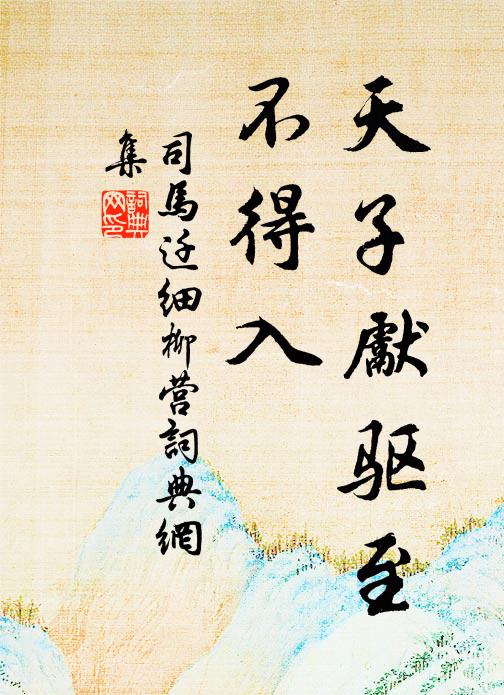 天子獻驱至
不得入
司馬迁细柳营詞典網
集
詞典
网印